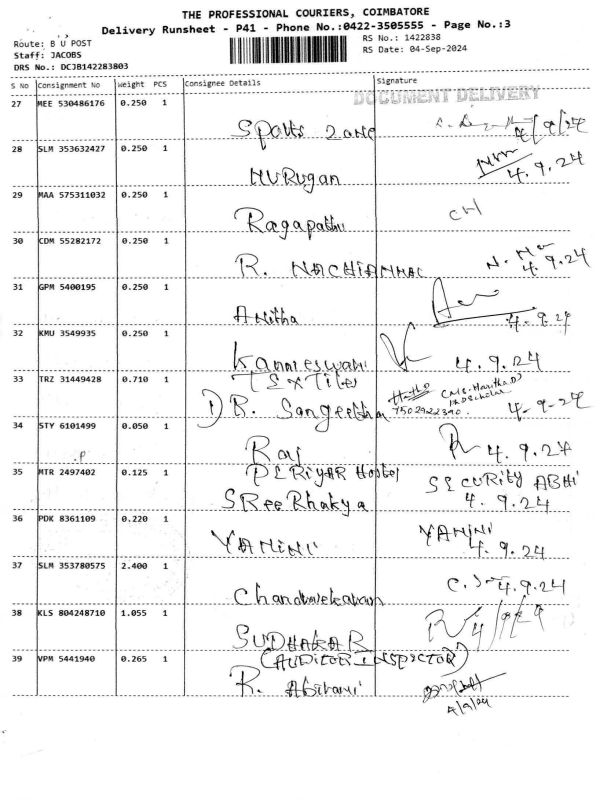 THE PROFESSIONAL COURIERS, COIMBATORE
Delivery Runsheet - P41 - Phone No.:0422-3505555 - Page No.:3
Route: B U POST
RS No.: 1422838
Staff: JACOBS
RS Date: 04-Sep-2024
DRS No.: DCJB142283803
S No Consignment No Weight PCS Consignee Details Signature
DOCUMENT DELIVERY
27 MEE 530486176 0.250 1
Sports Zone 4/9/24
28 SLM 353632427 0.250 1
MURUgan 4.9.24
29 MAA 575311032 0.250 1
Ragapathi CH
30 CDM 55282172 0.250 1
R. NACHIAMMAL 4.9.24
31 GPM 5400195 0.250 1
Anitha 4.9.24
32 KMU 3549935 0.250 1
Kanmeswari 4.9.24
33 TRZ 31449428 0.710 1
TEXTiles
DR. Sangeetha 7502922390 4-9-24
34 STY 6101499 0.050 1
Raj 4.9.24
35 MTR 2497402 0.125 1
PERiYAR Hostel SECURity ABHi
SRee Bhakya 4.9.24
36 PDK 8361109 0.220 1
YAMINI YAMINI
4.9.24
37 SLM 353780575 2.400 1
Chandrasekaran 4.9.24
38 KLS 804248710 1.055 1
SUDHAKAR 4/9/24
39 VPM 5441940 0.265 1
(AUDITOR INSPECTOR)
R. Abirami
4/9/24